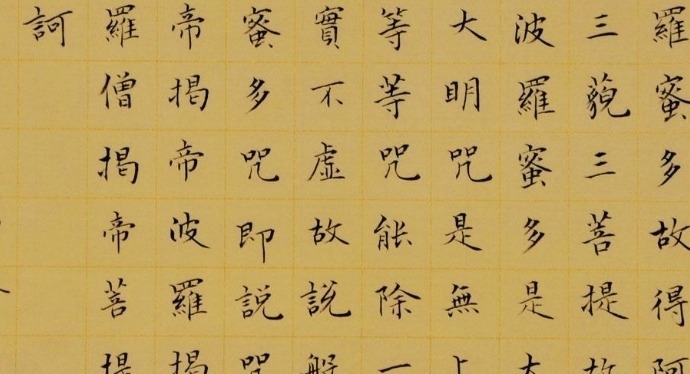 羅蜜多故得阿
三藐三菩提故
波羅蜜多是大
大明咒是無上
等等咒能除一
實不虛故說般
蜜多咒即說咒
帝揭帝波羅揭
羅僧揭帝菩提
訶